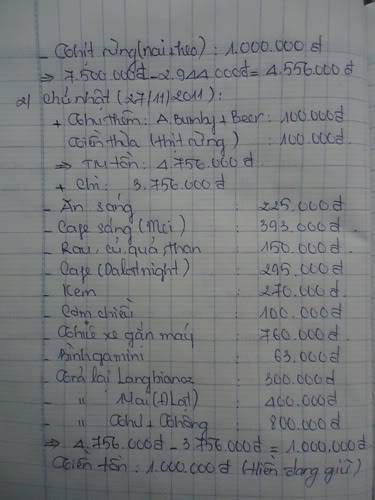 - Thịt rừng (nai, heo) : 1.000.000 đ
⇒ 7.500.000đ - 2.944.000đ = 4.556.000đ
2) Chủ nhật (27/11/2011) :
+ Thu thêm : A. Bunhy + Beer : 100.000đ
Tiền thừa (thịt rừng) : 100.000đ
⇒ TM tồn : 4.756.000đ
+ Chi : 3.756.000đ
- Ăn sáng : 225.000đ
- Cafe sáng (Mci) : 393.000đ
- Rau, củ, quả, than : 150.000đ
- Cafe (Dalat night) : 295.000đ
- Kem : 270.000đ
- Cơm chiều : 100.000đ
- Thuê xe gắn máy : 760.000đ
- Bình gamini : 63.000đ
- Trả lại Langbianoz : 300.000đ
- " Mai (ĐLạt) : 400.000đ
- " Thu + Thông : 800.000đ
⇒ 4.756.000đ - 3.756.000đ = 1.000.000đ
Tiền tồn : 1.000.000đ (Hiền đang giữ)